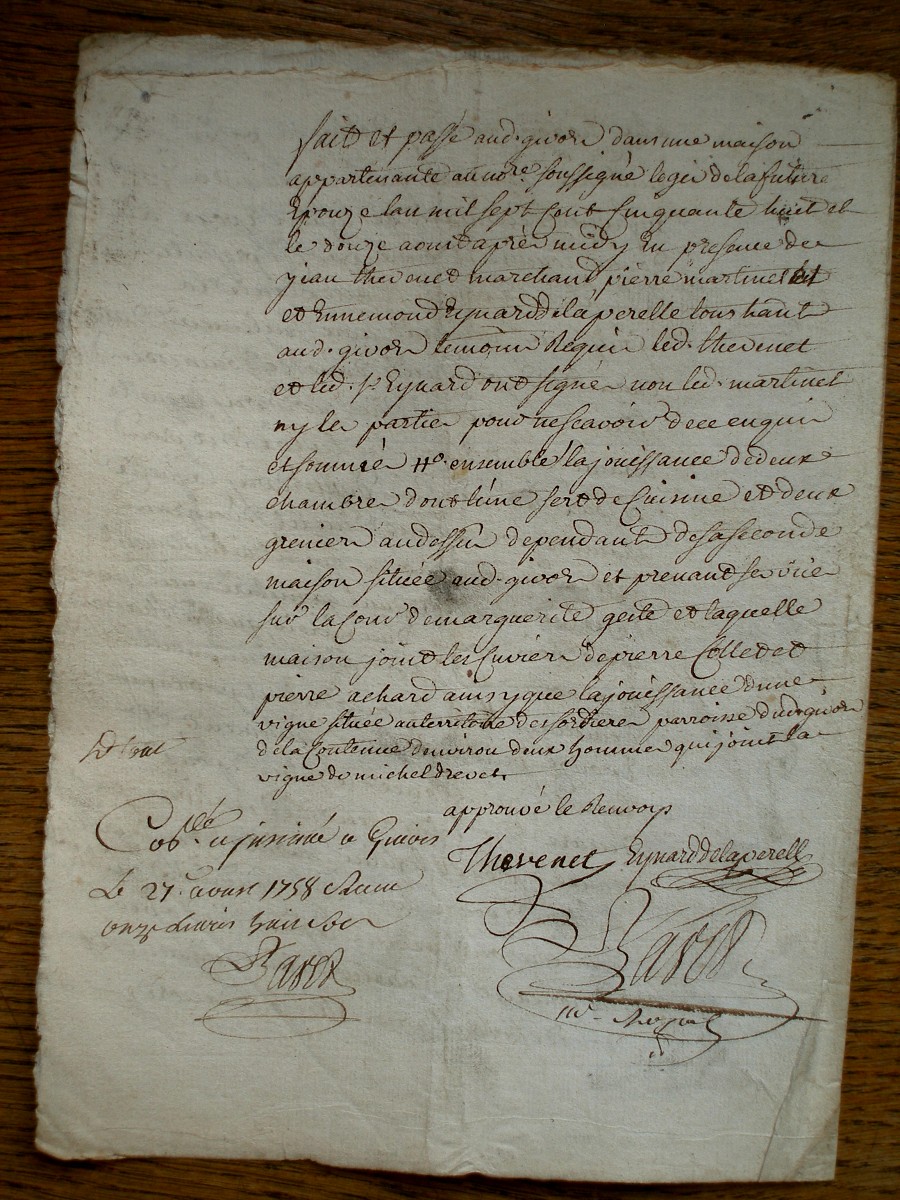 fait et passé aud. givors dans une maison
appartenante au nore. soussigné logis de la future
Epouze lan mil sept Cent Cinquante huit et
le douze aoust après midy En presence de
jean thevenet marchand, pierre martinet
et Ennemond Eynard de la perelle tous hant
aud. givors temoins Requis led. thevenet
et led. sr. Eynard ont signé non led. martinet
ny les parties pour ne scavoir de ce enquis
et sommés #o. ensemble la jouissance de deux
chambres dont lune sert de Cuisine et deux
greniers au dessus dependants de sa seconde
maison située aud. givors et prenant ses vües
sur la Cour de marguerite geste et laquelle
maison joint les Cuviers de pierre Collet et
pierre achard ainsy que la jouissance dune
vigne située au territoire des sordieres parroisse dud. givors
de la Contenue denviron deux hommes qui joint la
vigne de michel drevet.
approuvé le Renvoys
Thevenet Eynard de la perelle
Collé. et insinué a Givors
Le 27e. aoust 1758 Receu
onze Livres huit sols